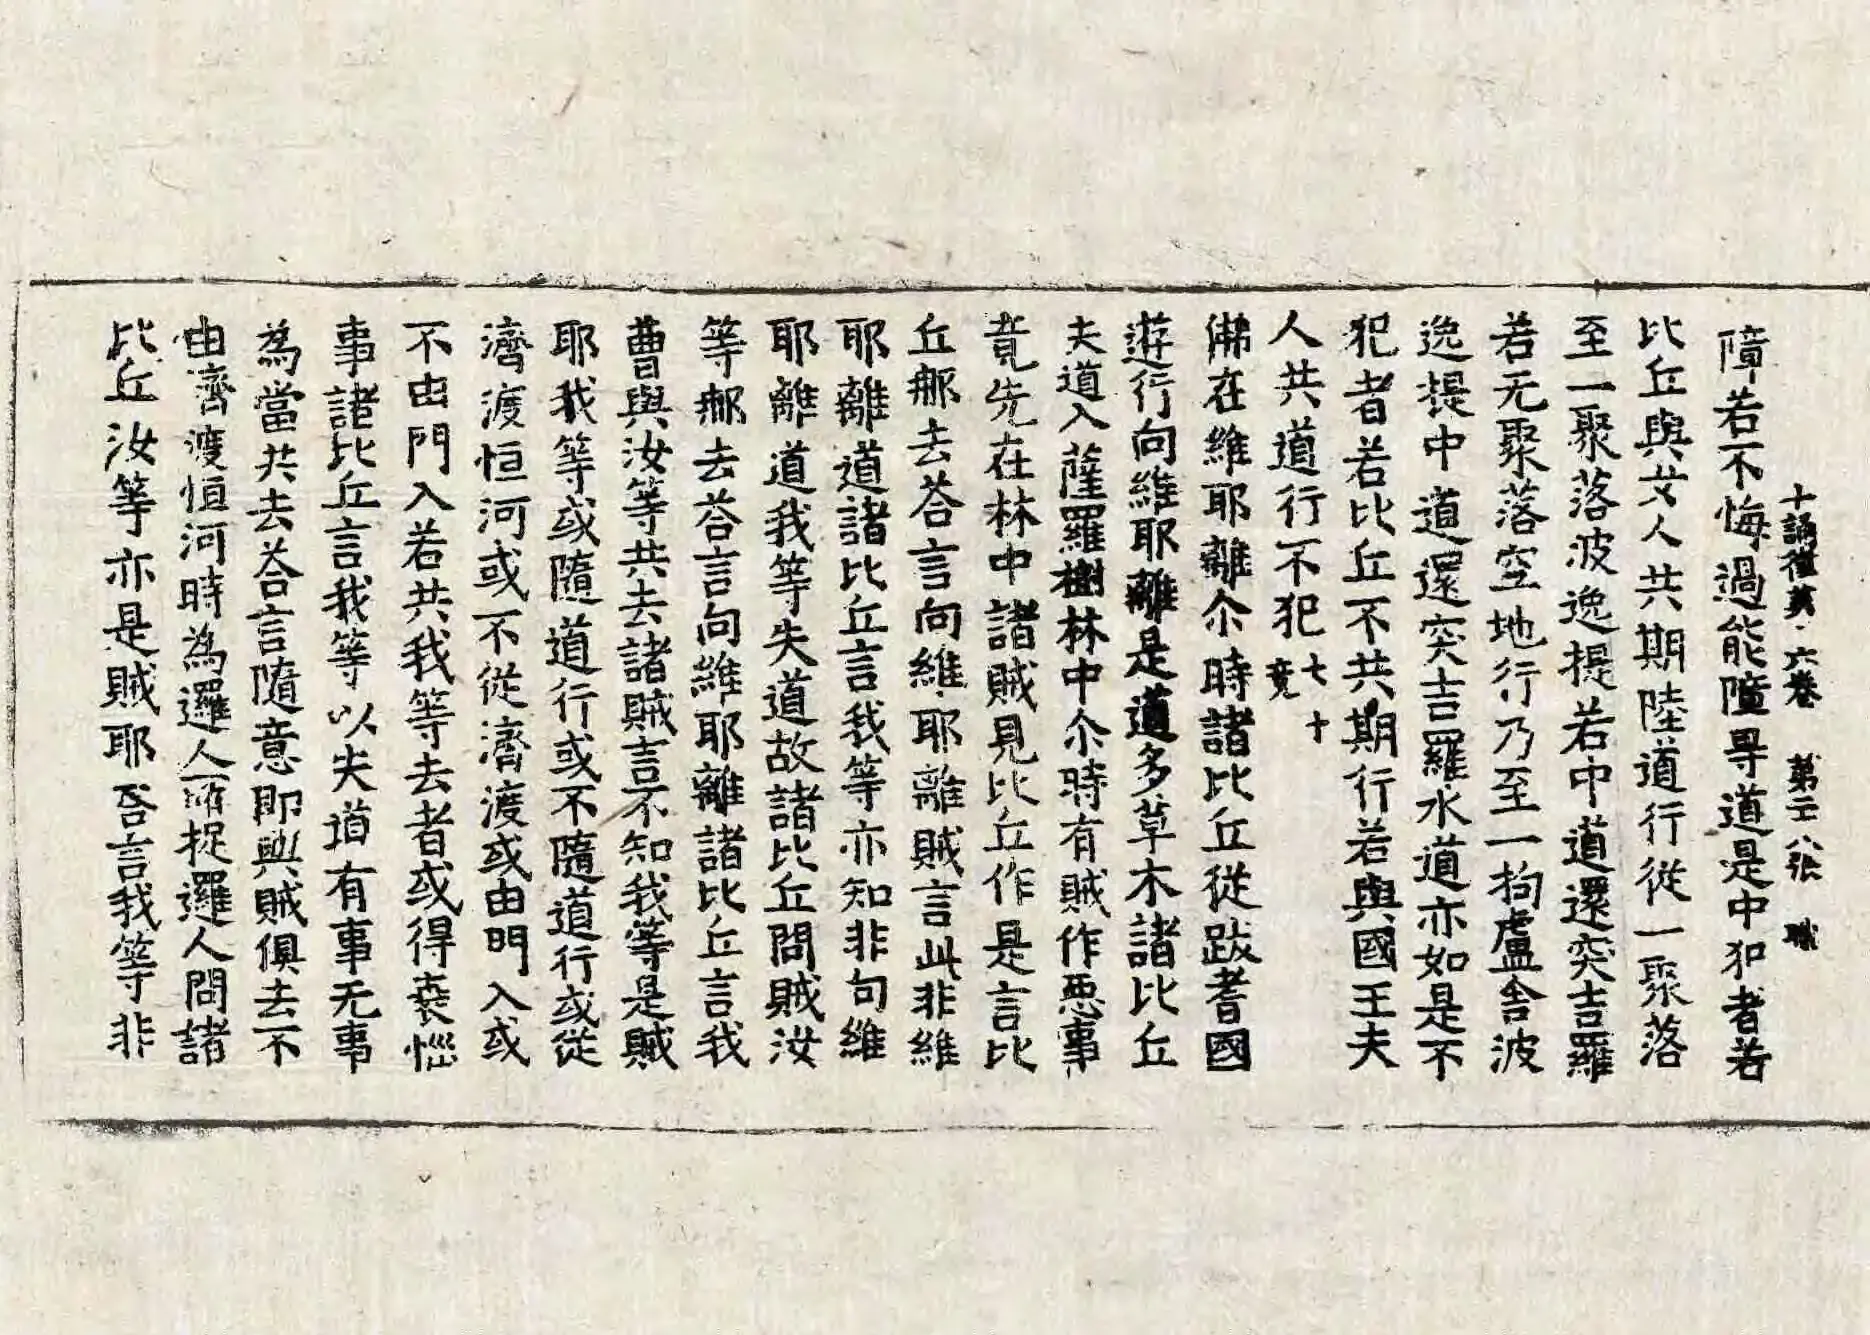 障若不悔過能障㝵道是中犯者若
十誦律第十六卷　第二十八張　職
比丘與女人共期陸道行從一聚落
至一聚落波逸提若中道還突吉羅
若无聚落空地行乃至一拘盧舍波
逸提中道還突吉羅水道亦如是不
犯者若比丘不共期行若與國王夫
人共道行不犯七十竟
佛在維耶離尒時諸比丘從跋耆國
遊行向維耶離是道多草木諸比丘
失道入薩羅樹林中尒時有賊作惡事
竟先在林中諸賊見比丘作是言比
丘那去荅言向維耶離賊言此非維
耶離道諸比丘言我等亦知非向維
耶離道我等失道故諸比丘問賊汝
等那去荅言向維耶離諸比丘言我
曹與汝等共去諸賊言不知我等是賊
耶我等或隨道行或不隨道行或從
濟渡恒河或不從濟渡或由門入或
不由門入若共我等去者或得衰惱
事諸比丘言我等以失道有事无事
為當共去荅言隨意即與賊俱去不
由濟渡恒河時為邏人所捉邏人問諸
比丘汝等亦是賊耶荅言我等非